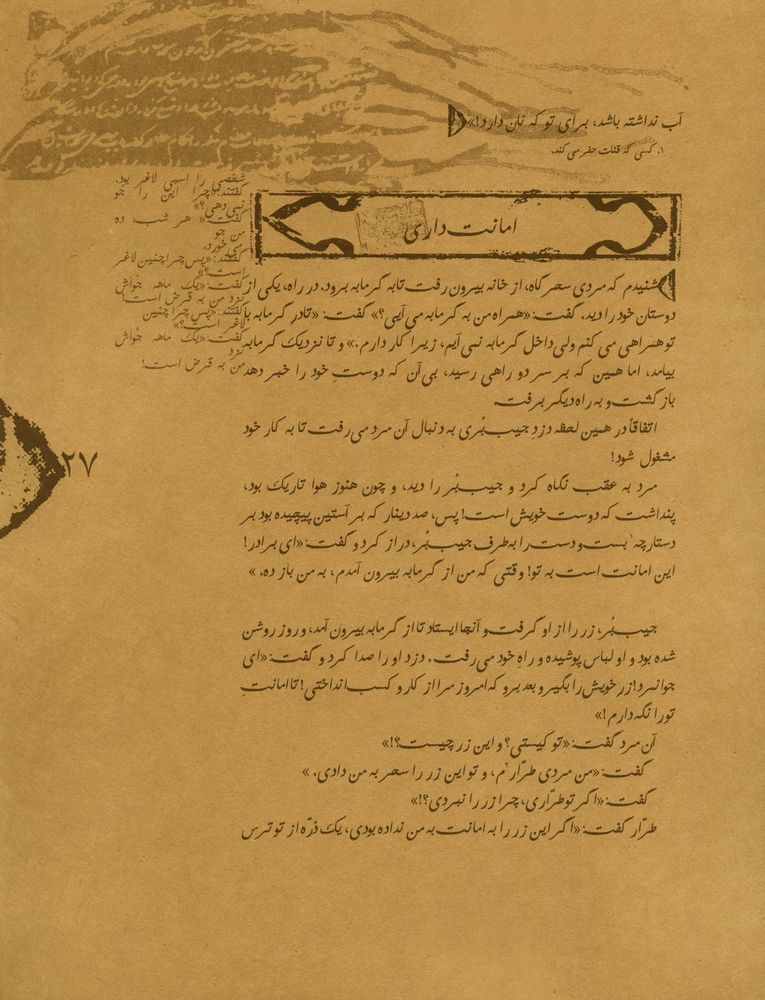 آب نداشته باشد، برای تو که نان دارد!»
۱. کسی که قنات حفر می‌کند.
امانت‌داری
شنیدم که مردی سحرگاه، از خانه بیرون رفت تا به گرمابه برود. در راه، یکی از
دوستان خود را دید. گفت: «همراه من به گرمابه می‌آیی؟» گفت: «تا در گرمابه با
تو همراهی می کنم ولی داخل گرمابه نمی آیم، زیرا کار دارم.» و تا نزدیک گرمابه
بیامد، اما همین که بر سر دو راهی رسید، بی آن که دوستِ خود را خبر دهد
بازگشت و به راه دیگر برفت.
اتفاقاً در همین لحظه دزد جیب‌بُری به دنبال آن مرد می‌رفت تا به کار خود
مشغول شود!
مرد به عقب نگاه کرد و جیب‌بُر را دید، و چون هنوز هوا تاریک بود،
پنداشت که دوست خویش است! پس، صد دینار که بر آستین پیچیده بود بر
دستارچه بست و دست را به طرف جیب‌بُر، دراز کرد و گفت: «ای برادر!
این امانت است به تو! وقتی که من از گرمابه بیرون آمدم، به من باز ده.»
جیب‌بُر، زر را از او گرفت و آنجا ایستاد تا از گرمابه بیرون آمد، و روز روشن
شده بود و او لباس پوشیده و راهِ خود می‌رفت. دزد او را صدا کرد و گفت: «ای
جوانمرد! زر خویش را بگیر و بعد برو که امروز مرا از کار و کسب انداختی! تا امانتِ
تو را نگه دارم!»
آن مرد گفت: «تو کیستی؟ و این زر چیست؟!»
گفت: «من مردی طرّارم، و تو این زر را سحر به من دادی.»
گفت: «اگر تو طرّاری، چرا زر را نبردی؟!»
طرّار گفت: «اگر این زر را به امانت به من نداده بودی، یک ذرّه از تو ترس
شخصی را اسبی لاغر بود.
گفتند: «چرا این را جو
نمی دهی؟»
گفت: «هر شب ده
من جو
می خورد.
گفتند: «پس چرا چنین لاغر
است؟»
گفت: «یک ماهه جُواش
نزد من به قرض است!
گفتند: «پس چرا چنین
لاغر است؟»
گفت: «یک ماهه جُواش
نزد
من به قرض است!
۲۷